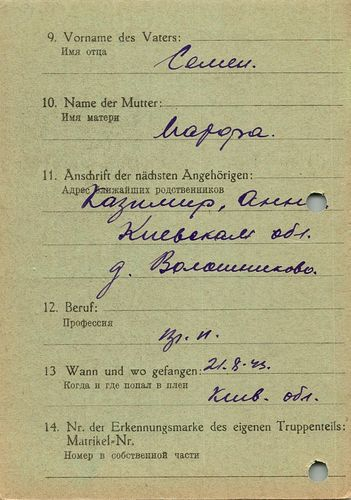 9. Vorname des Vaters:
Имя отца
Семен.
10. Name der Mutter:
Имя матери
Марфа.
11. Anschrift der nächsten Angehörigen:
Адрес ближайших родственников
Казимир, Анн
Киевская обл.
д. Волошиново.
12. Beruf:
Профессия
13 Wann und wo gefangen: 21.8.43.
Когда и где попал в плен
Киев. обл.
14. Nr. der Erkennungsmarke des eigenen Truppenteils:
Matrikel-Nr.
Номер в собственной части